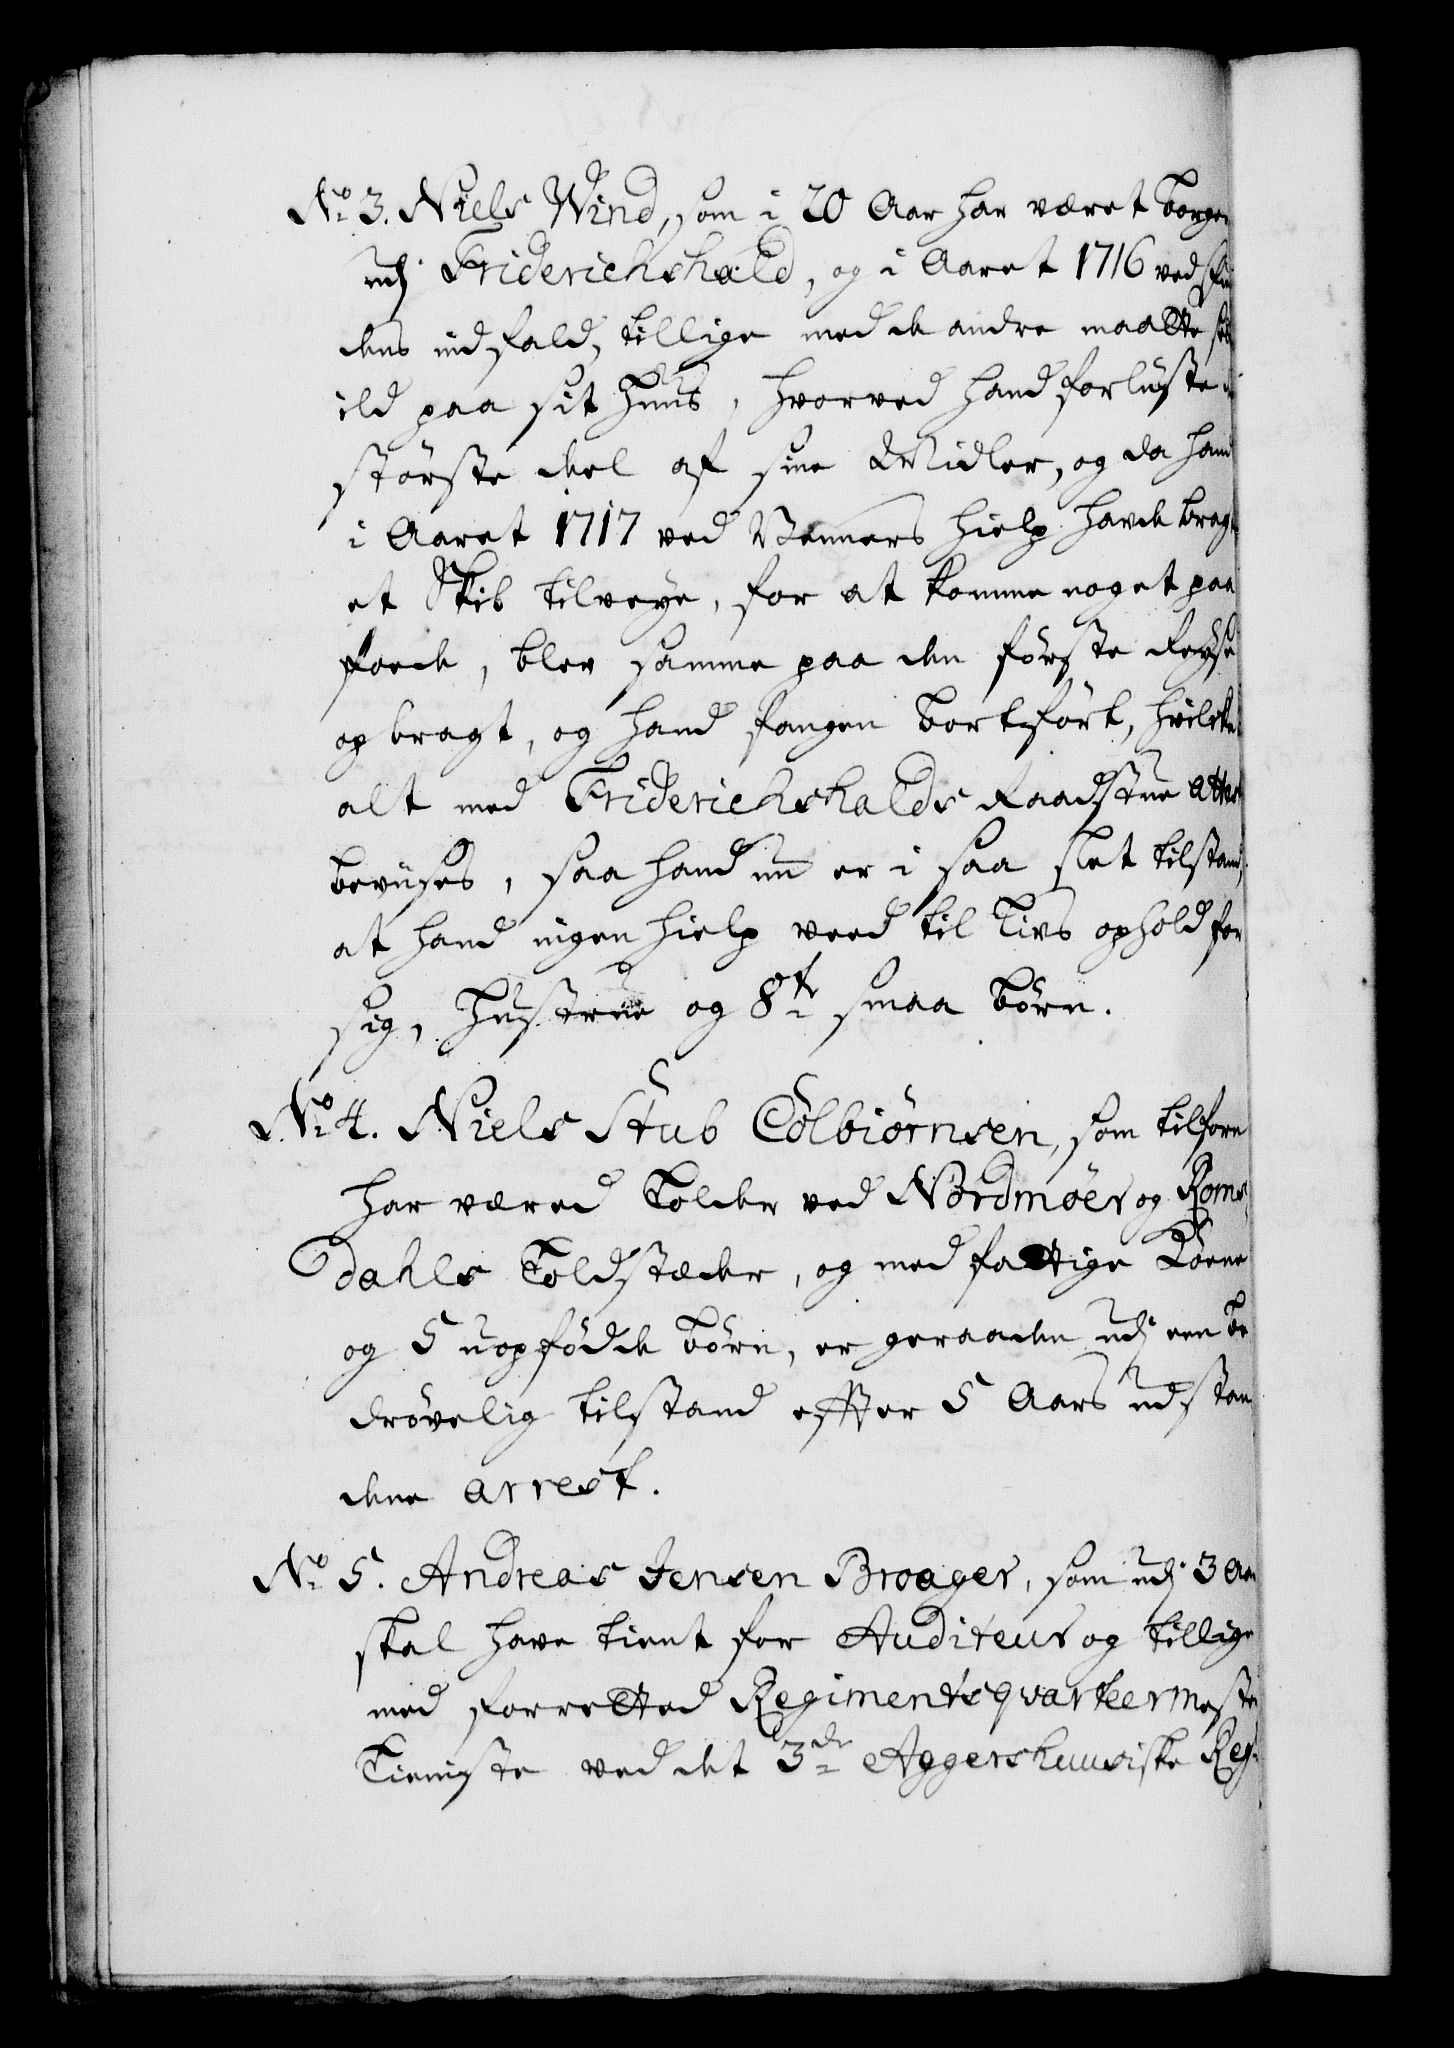 No 3. Niels Wind, som i 20 Aar har været borger
udj Friderichshald, og i Aaret 1716 ved fien
dens indfald, tillige med de andre maatte
ild paa sit Huus, hvorved hand forlüste
störste deel af sine Midler, og da hand
i Aaret 1717 ved Venners hielp havde bragt
et Skib tilveye, for at komme noget paa
foede, blev samme paa den förste Reyse
opbragt, og hand fangen bortfört, hvilcket
alt med Friderichshalds Raadstue Attest
bevises, saa hand nu er i saa slet tilstand,
at hand ingen hielp veed til Livs ophold for
sig, Hustrue og 8te smaa börn.
No 4. Niels Stub Colbiørnsen, som tilforn
har væred Tolder ved Nordmøers og Roms,
dahls Toldstæder, og med fattige Kone
og 5 uopfödde börn, er geraaden udj een be
drövelig tilstand effter 5 Aars udstan
dene arrest.
No 5. Andreas Jensen Broager, som udj 3 Aar
skal have tient for Auditeur og tillige
med forretted Regimentsqvarteermester
Tieniste ved det 3de Aggershuusiske Reg: